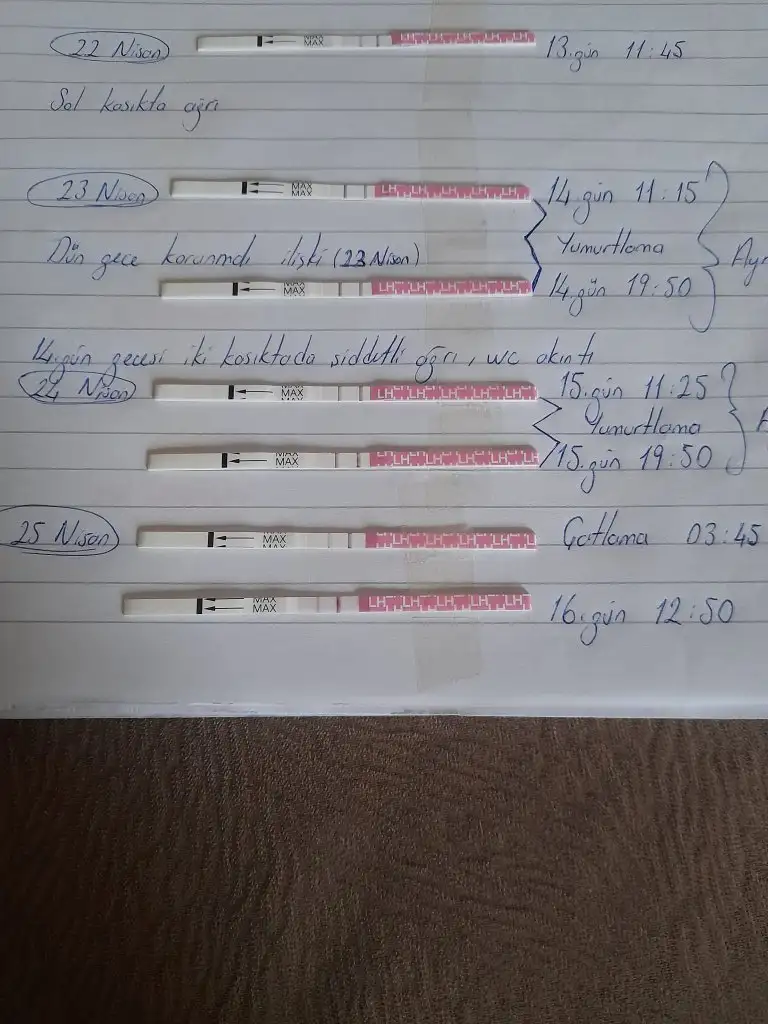 22 Nisan MAX MAX LH LH LH LH LH 13.gün 11:45
Sol kasıkta ağrı
23 Nisan MAX MAX LH LH LH LH LH 14.gün 11:15
Yumurtlama
Dün gece korunmalı ilişki (23 Nisan)
MAX MAX LH LH LH LH LH 14.gün 19:50
14.gün gecesi iki kasıktada şiddetli ağrı, wc akıntı
24 Nisan MAX MAX LH LH LH LH LH 15.gün 11:25
Yumurtlama
MAX MAX LH LH LH LH LH 15.gün 19:50
25 Nisan MAX MAX LH LH LH LH LH Çatlama 03:45
MAX MAX LH LH LH LH LH 16.gün 12:50